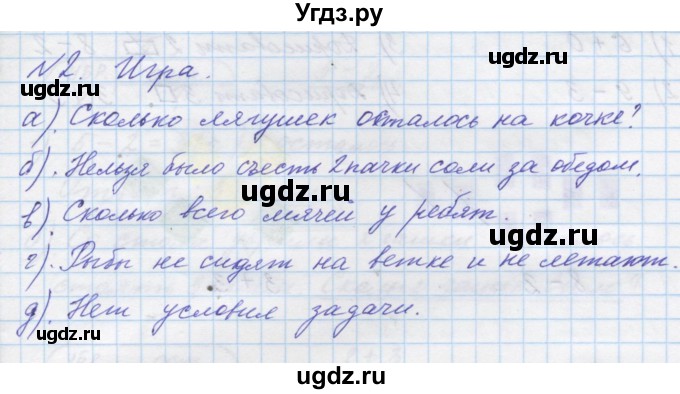 Угдз.ру
№2. Игра.
а). Сколько лягушек осталось на кочке?
б). Нельзя было съесть 2 пачки соли за обедом.
в). Сколько всего мячей у ребят.
г). Рыбы не сидят на ветке и не летают.
д). Нет условия задачи.
ugdz.ru
ugdz.ru
ugdz.ru
ugdz.ru
ugdz.ru
ugdz.ru